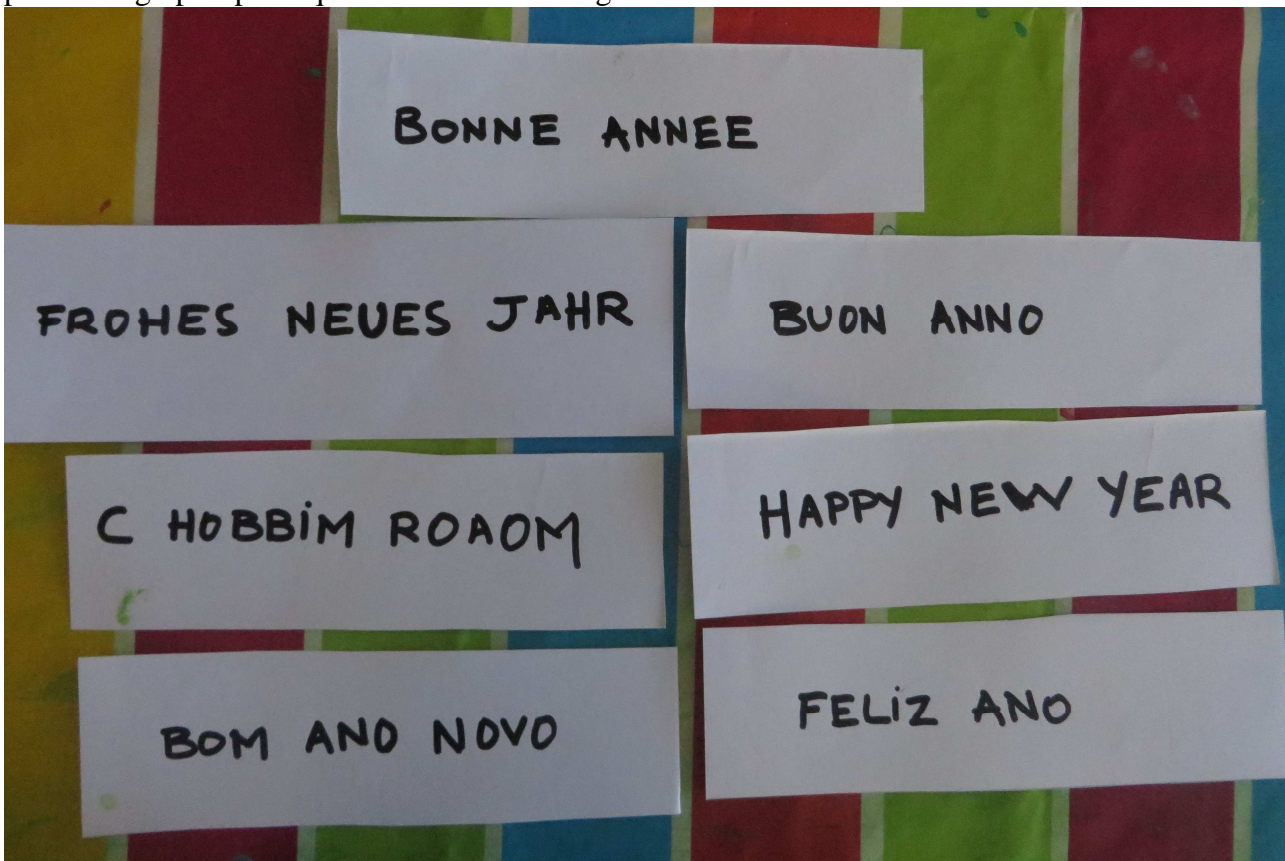 BONNE ANNEE
FROHES NEUES JAHR
BUON ANNO
C HOBBiM ROAOM
HAPPY NEW YEAR
BOM ANO NOVO
FELiZ ANO